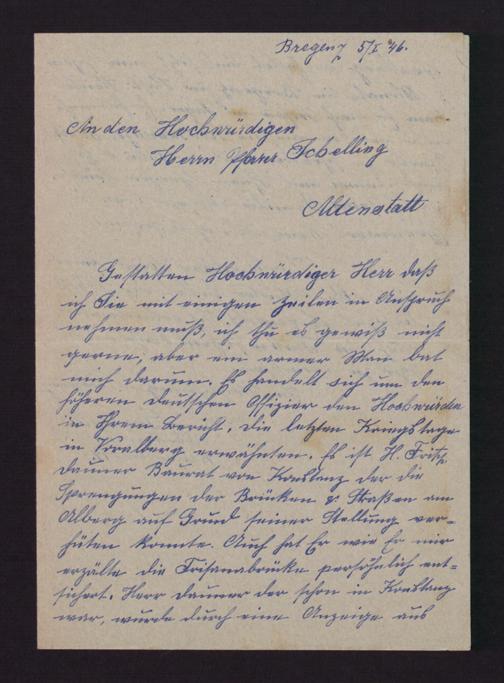 Bregenz 5/I 46.
An den Hochwürdigen
Herrn Pfarrer Schelling
Altenstatt
Gestatten Hochwürdiger Herr daß
ich Sie mit einigen Zeilen in Anspruch
nehmen muß, ich thu es gewiß nicht
gerne, aber ein armer Man bat
mich darum. Es handelt sich um den
höheren deutschen Offizier den Hochwürden
in Ihrem Bericht. Die letzten Kriegstage
in Voralberg erwähnten. Es ist H. Fritz
Dauner Baurat von Konstanz der die
Sprengungen der Brücken & Straßen am
Alberg auf Grund seiner Stellung ver-
hüten konnte. Auch hat Er wie Er mir
erzälte die Trisanabrüke persöhnlich ent-
sichert. Herr Dauner der schon in Konstanz
war, wurde durch eine Anzeige aus